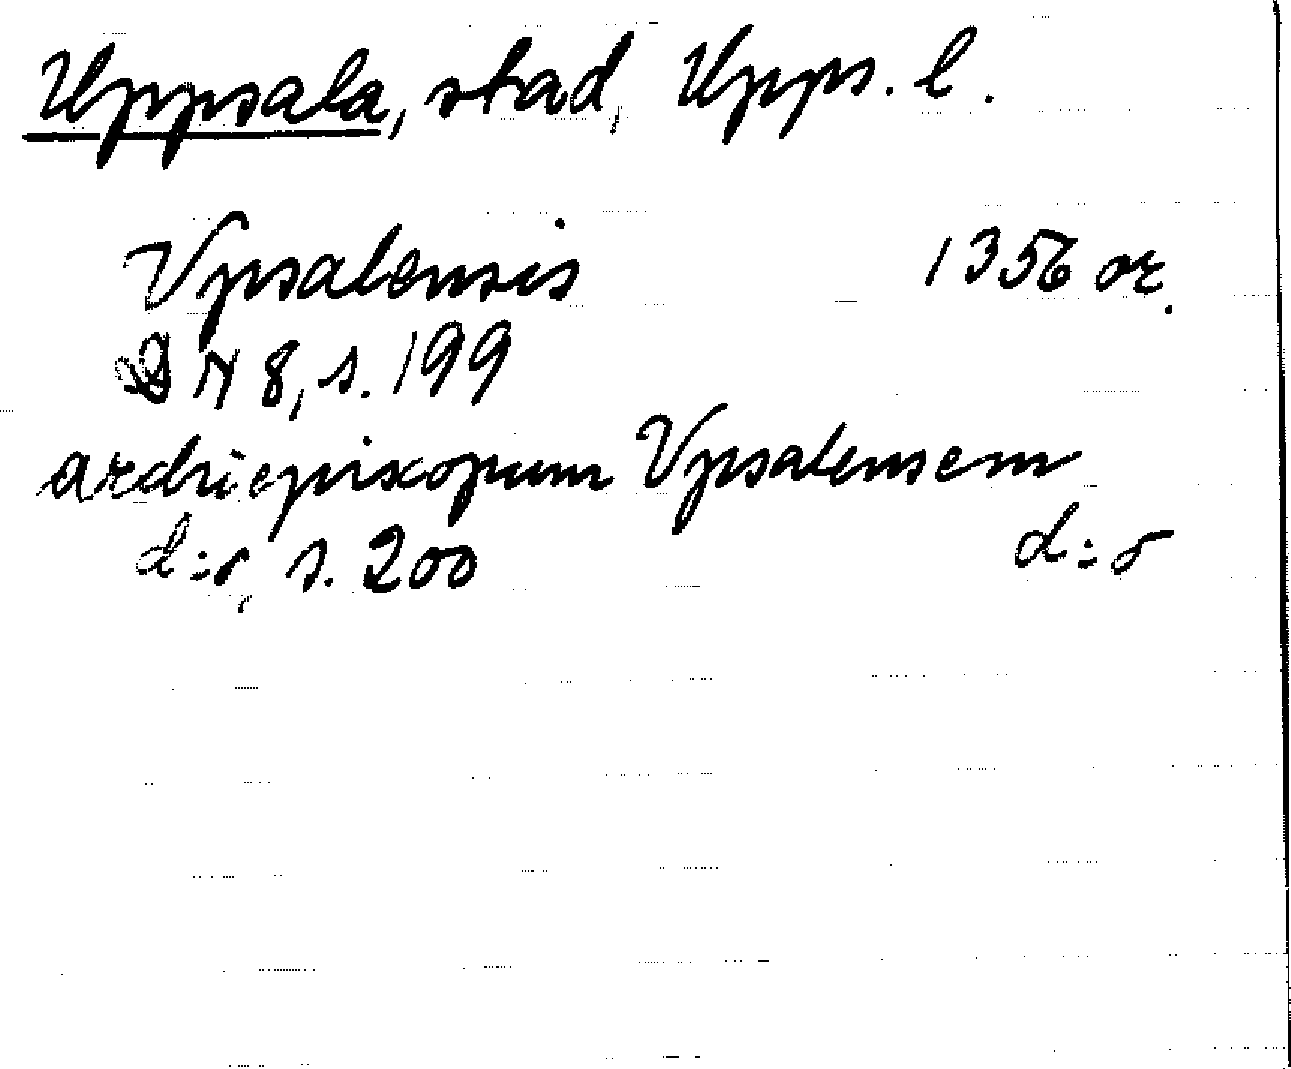 Uppsala, stad, Upps. l.
Vpsalensis 1356 or.
DN 8, s. 199
archiepiscopum Vpsalensem
d:o, s. 200 d:o